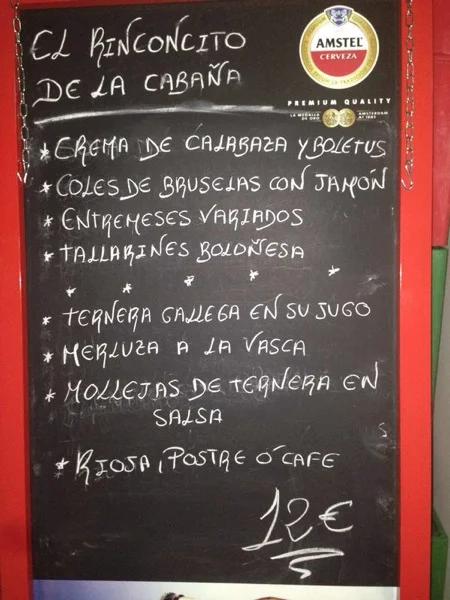 EL RINCONCITO
DE LA CABAÑA
AMSTEL
CERVEZA
PREMIUM QUALITY
LA MEDALLA DE ORO
AMSTERDAM
* CREMA DE CALABAZA Y BOLETUS
* COLES DE BRUSELAS CON JAMÓN
* ENTREMESES VARIADOS
* TALLARINES BOLOÑESA
* * * * *
* TERNERA GALLEGA EN SU JUGO
* MERLUZA A LA VASCA
* MOLLEJAS DE TERNERA EN
SALSA
* RIOJA, POSTRE Ó CAFE
12€